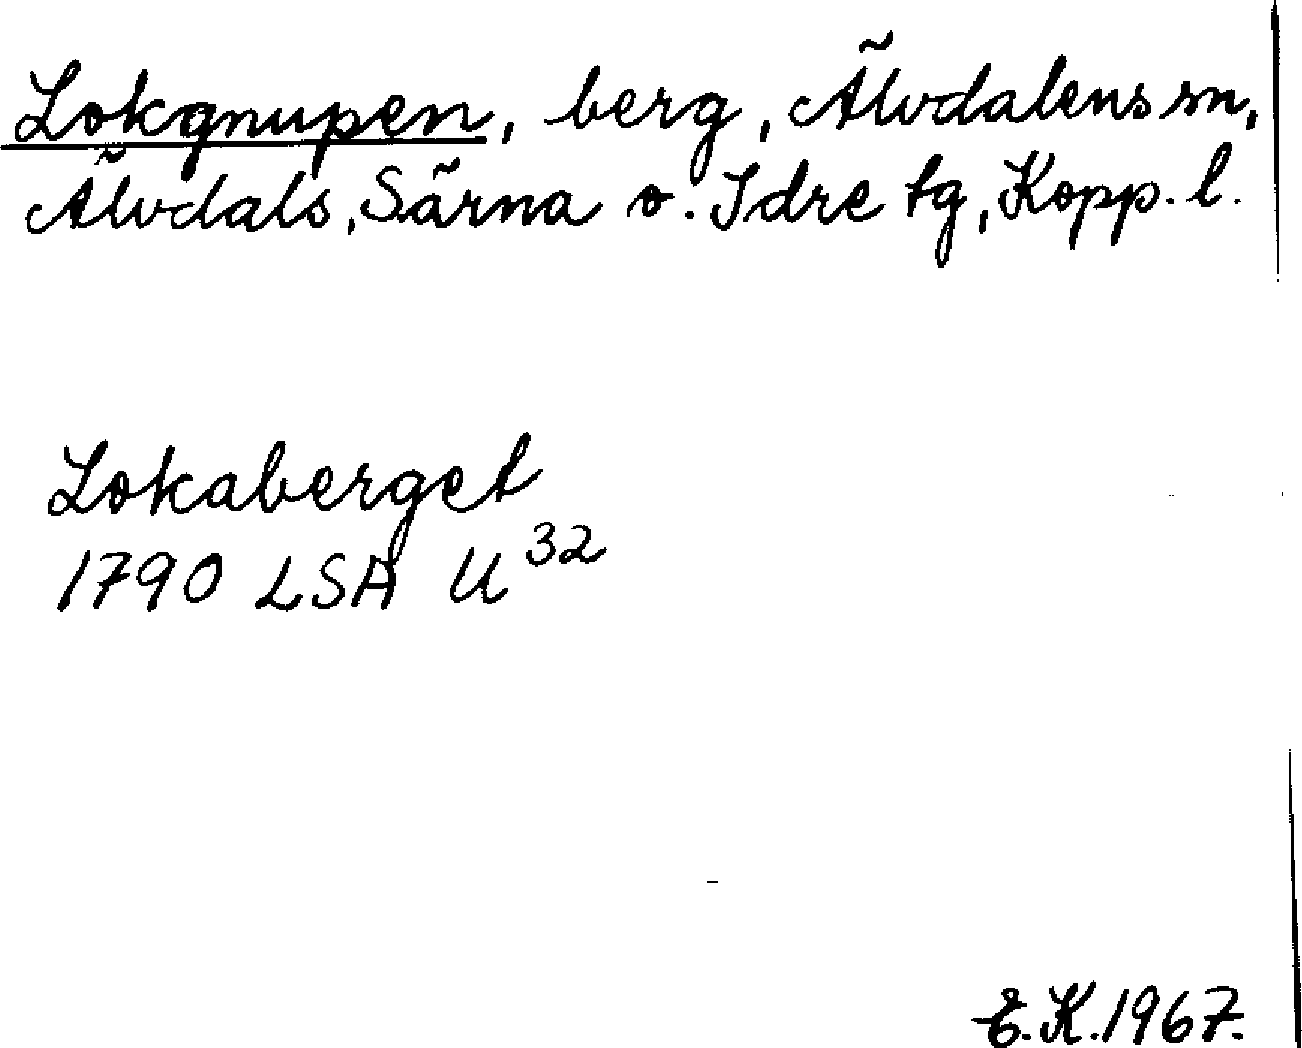 Lokgnupen, berg, Älvdalens sn,
Älvdals, Särna o. Idre tg, Kopp. l.
Lokaberget
1790 LSA U 32
E.K. 1967.